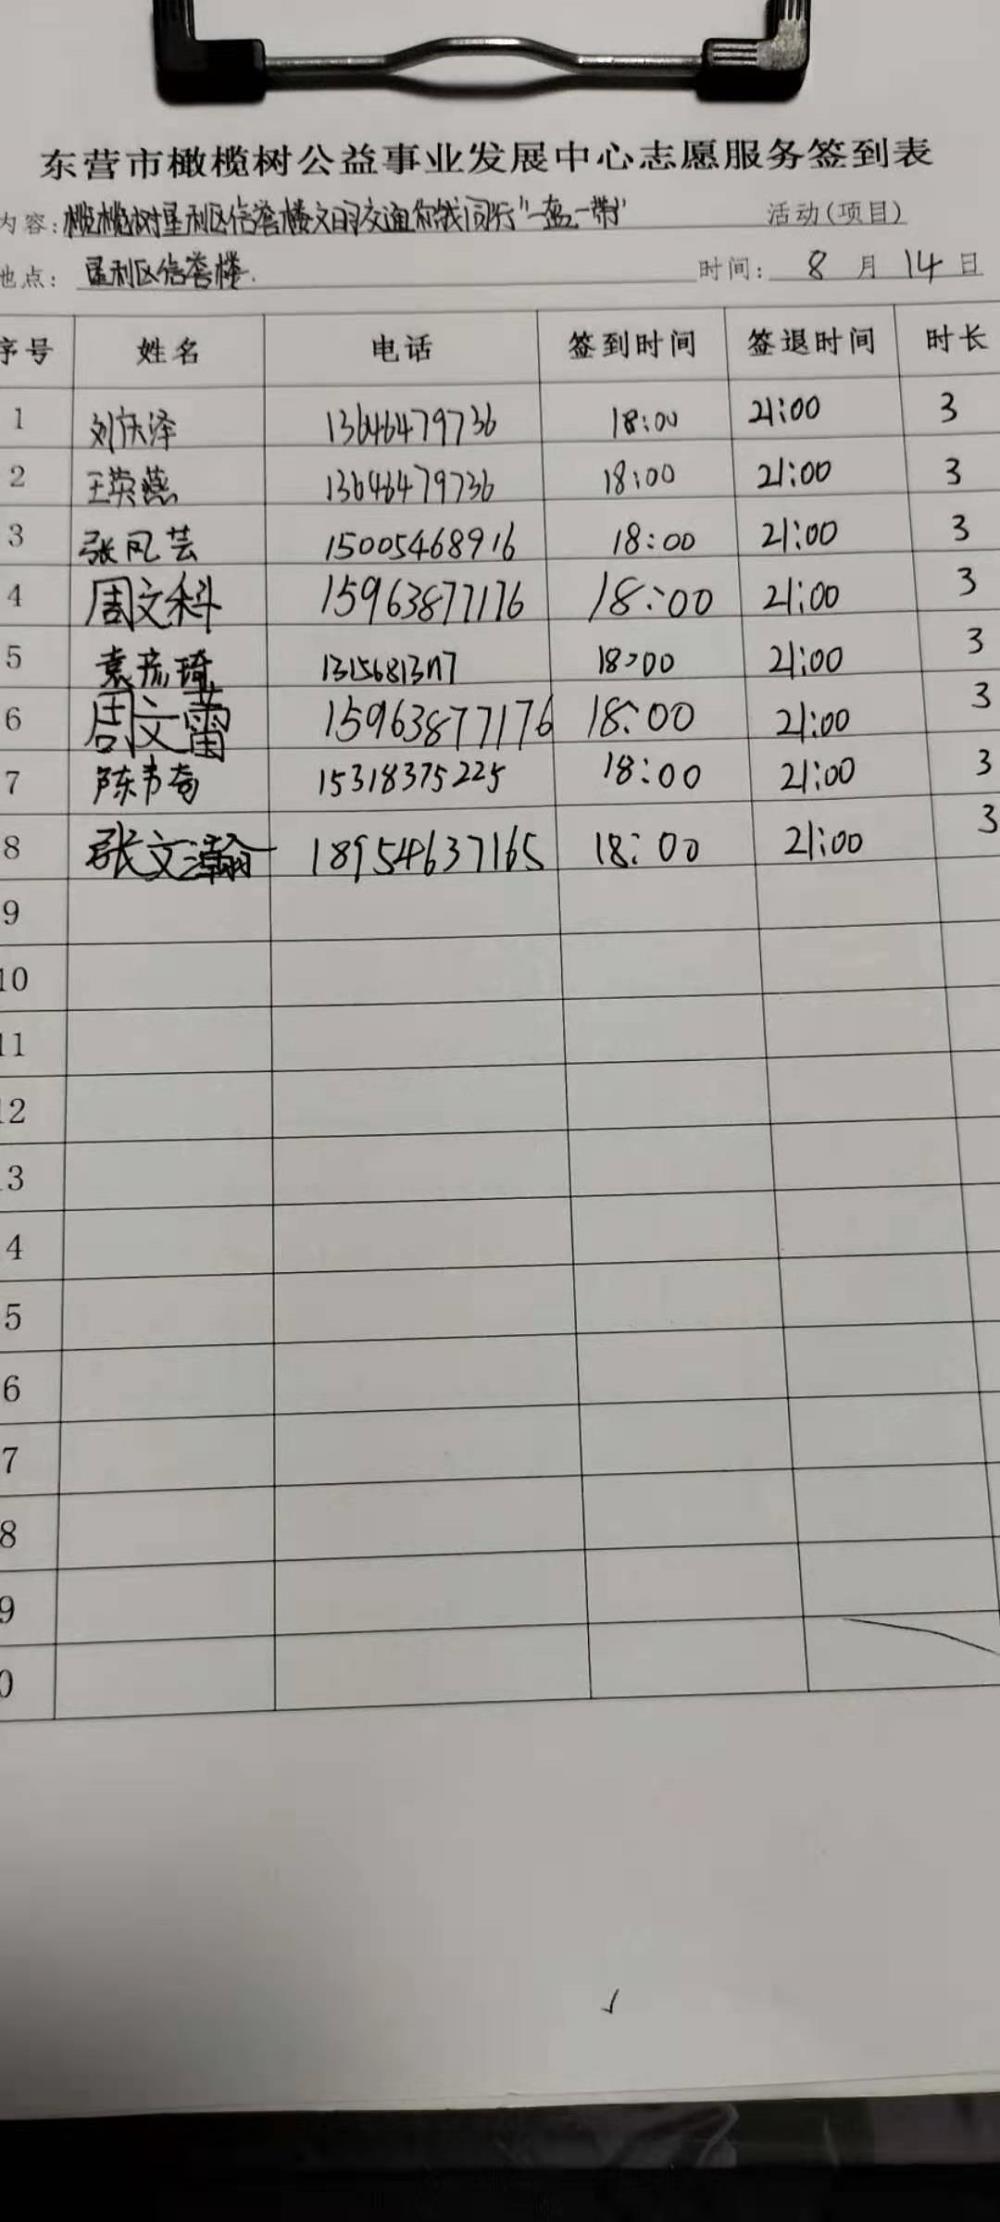 东营市橄榄树公益事业发展中心志愿服务签到表
内容：橄榄树垦利区信誉楼文明交通你我同行"一盔一带" 活动(项目)
地点：垦利区信誉楼. 时间：8月14日
序号 姓名 电话 签到时间 签退时间 时长
1 刘庆泽 13646479736 18:00 21:00 3
2 王英燕 13646479736 18:00 21:00 3
3 张凤芸 15005468916 18:00 21:00 3
4 周文科 15963877176 18:00 21:00 3
5 袁琦 18:00 21:00 3
6 周文蕾 15963877176 18:00 21:00 3
7 陈 15318375225 18:00 21:00 3
8 张文瀚 18954637165 18:00 21:00 3
9
10
11
12
13
4
5
6
7
8
9
0